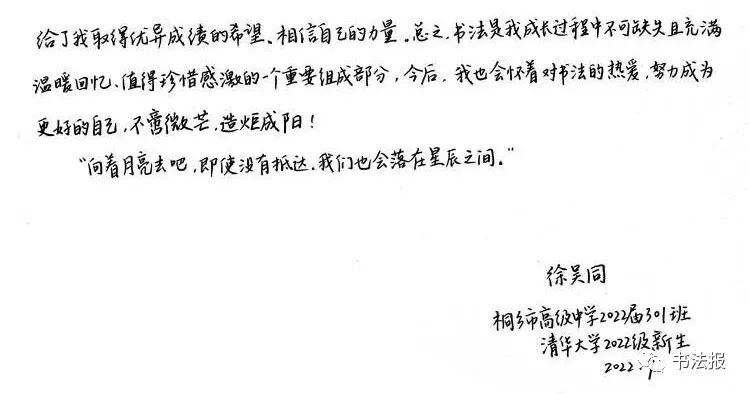 给了我取得优异成绩的希望、相信自己的力量。总之,书法是我成长过程中不可缺失且充满
温暖回忆、值得珍惜感激的一个重要组成部分,今后,我也会怀着对书法的热爱,努力成为
更好的自己,不啻微芒,造炬成阳!
“向着月亮去吧,即使没有抵达,我们也会落在星辰之间。”
徐吴同
桐乡市高级中学2022届301班
清华大学2022级新生
2022.
书法报